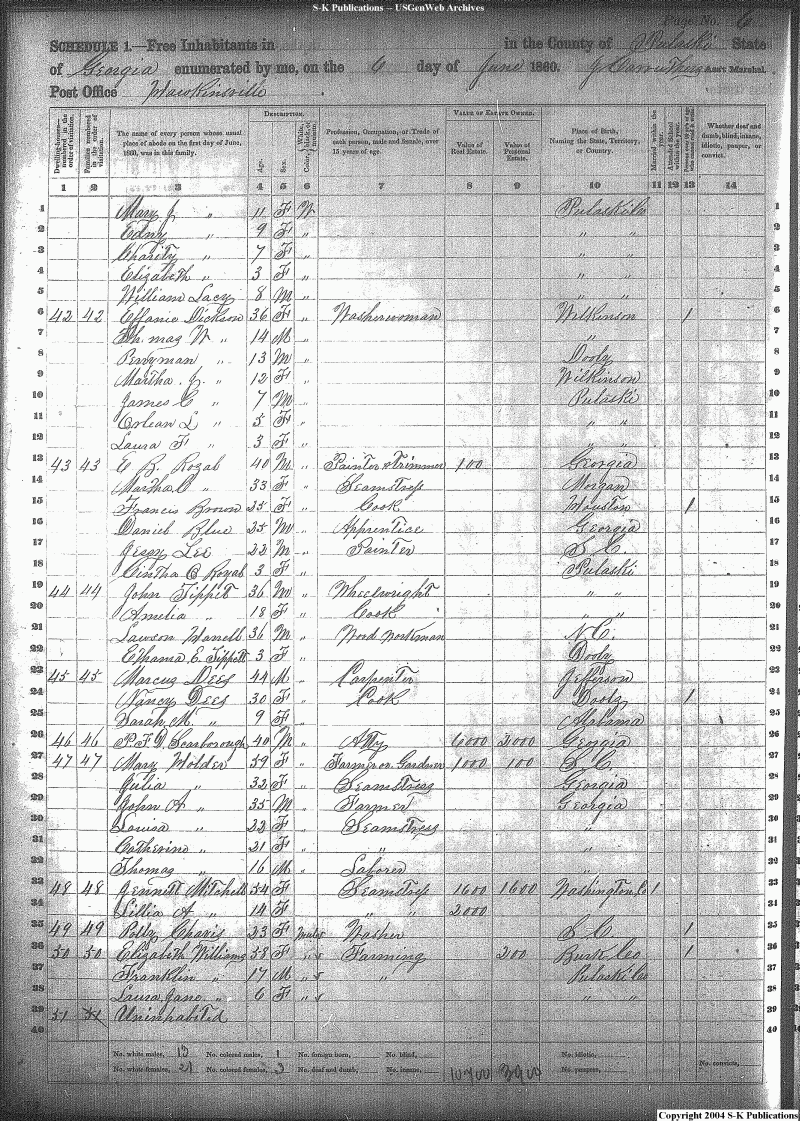 S-K Publications -- USGenWeb Archives
Page No. 6
SCHEDULE 1.—Free Inhabitants in in the County of Pulaski State
of Georgia enumerated by me, on the 6 day of June 1860. Ass't Marshal.
Post Office Hawkinsville
Dwelling-houses numbered in the order of visitation. Families numbered in the order of visitation. The name of every person whose usual place of abode on the first day of June, 1860, was in this family. DESCRIPTION. Age. Sex. Color, White, black, or mulatto. Profession, Occupation, or Trade of each person, male and female, over 15 years of age. VALUE OF ESTATE OWNED. Value of Real Estate. Value of Personal Estate. Place of Birth, Naming the State, Territory, or Country. Married within the year. Attended School within the year. Whether deaf and dumb, blind, insane, idiotic, pauper, or convict.
1 2 3 4 5 6 7 8 9 10 11 12 13 14
1 Mary J " 11 F W Pulaski Co 1
2 Edny " 9 F " " " 2
3 Charity " 7 F " " " 3
4 Elizabeth " 3 F " " " 4
5 William Lacy 8 M " " " 5
6 42 42 Effanie Dickson 36 F " Washerwoman Wilkinson 1 6
7 Th. mag W " 14 M " " 7
8 Perryman " 13 M " Dooly 8
9 Martha J. " 12 F " Wilkinson 9
10 James C " 7 M " Pulaski 10
11 Orlean L " 5 F " " " 11
12 Laura F " 3 F " " " 12
13 43 43 E B. Rozab 40 M " Painter & Trimmer 100 Georgia 13
14 Martha C " 33 F " Seamstress Morgan 14
15 Francis Brown 25 F " Cook Houston 1 15
16 Daniel Blue 25 M " Apprentice Georgia 16
17 Jessy Lee 22 M " Painter S C 17
18 Cintha C Royal 3 F " Pulaski 18
19 44 44 John Tippit 36 M " Wheelwright " " 19
20 Amelia " 18 F " Cook " " 20
21 Lawson Harrell 36 M " Wood workman N C. 21
22 Ethama E. Tippett 3 F " Dooly 22
23 45 45 Marcus Dees 44 M " Carpenter Jefferson 23
24 Nancy Dees 30 F " Cook Dooly 1 24
25 Sarah M " 9 F " Alabama 25
26 46 46 P. F. D. Scarborough 40 M " Atty 6000 2000 Georgia 26
27 47 47 Mary Holder 59 F " Farmer or Gardner 1000 100 S C 27
28 Julia " 32 F " Seamstress Georgia 28
29 John A " 35 M " Farmer Georgia 29
30 Louisa " 22 F " Seamstress " 30
31 Catherine " 21 F " " " 31
32 Thomas " 16 M " Laborer " 32
33 48 48 Gennett Mitchell 54 F Seamstress 1600 1600 Washington Co 1 33
34 Lillia A " 14 F " " 2000 34
35 49 49 Polly Chavis 23 F Mulat Washer S C 1 35
36 50 50 Elizabeth Williams 58 F " Farming 200 Burk Co 1 36
37 Franklin " 17 M " " Pulaski Co 37
38 Laura Jane " 6 F " " " 38
39 51 51 Uninhabited 39
40 40
No. white males, 13 No. colored males, 1 No. foreign born, No. blind, No. idiotic, No. convicts,
No. white females, 21 No. colored females, 3 No. deaf and dumb, No. insane, 10700 3900 No. paupers,
Copyright 2004 S-K Publications